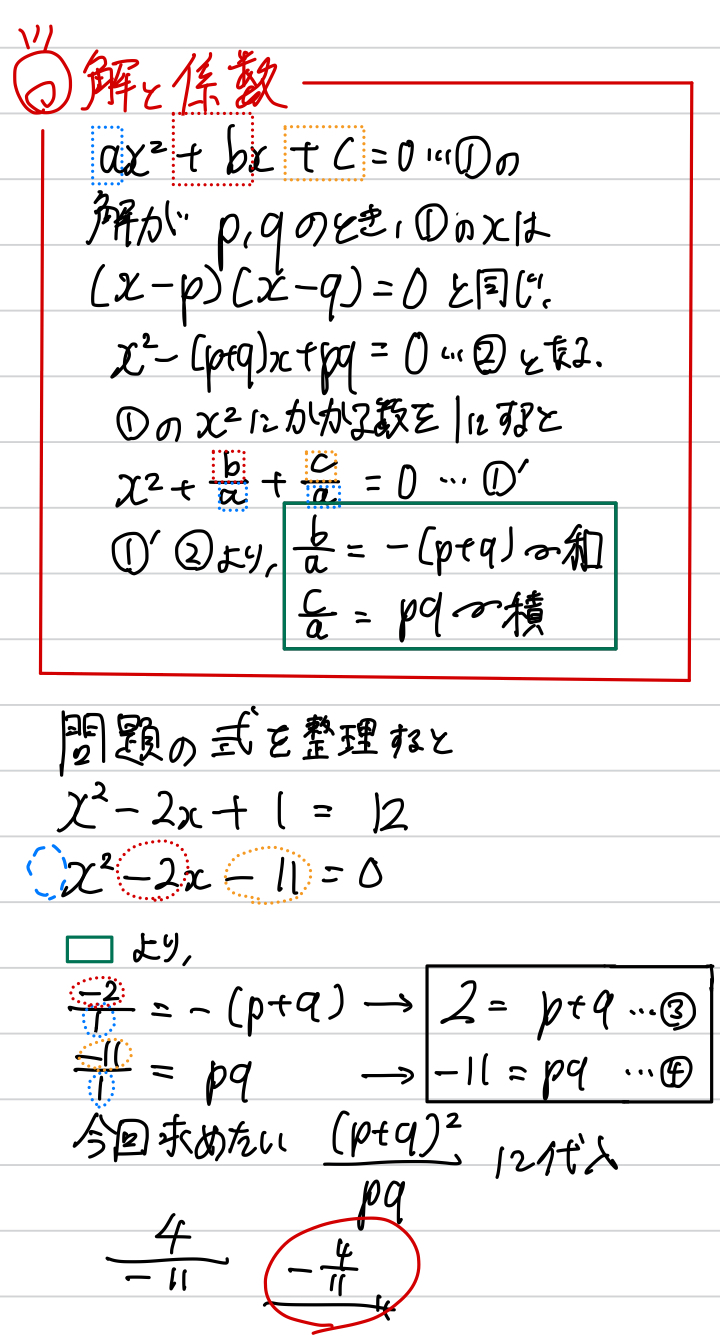 解と係数
ax² + bx + c = 0 … ①の
解が p, q のとき, ①のxは
(x-p)(x-q) = 0 と同じ.
x² - (p+q)x + pq = 0 … ② となる.
①のx²にかかる数を1にすると
x² + b/a + c/a = 0 … ①′
①′ ②より, b/a = -(p+q) 〜和
c/a = pq 〜積
問題の式を整理すると
x² - 2x + 1 = 12
x² - 2x - 11 = 0
より,
-2/1 = -(p+q) → 2 = p+q … ③
-11/1 = pq → -11 = pq … ④
今回求めたい (p+q)²/pq に代入
4/-11 -4/11